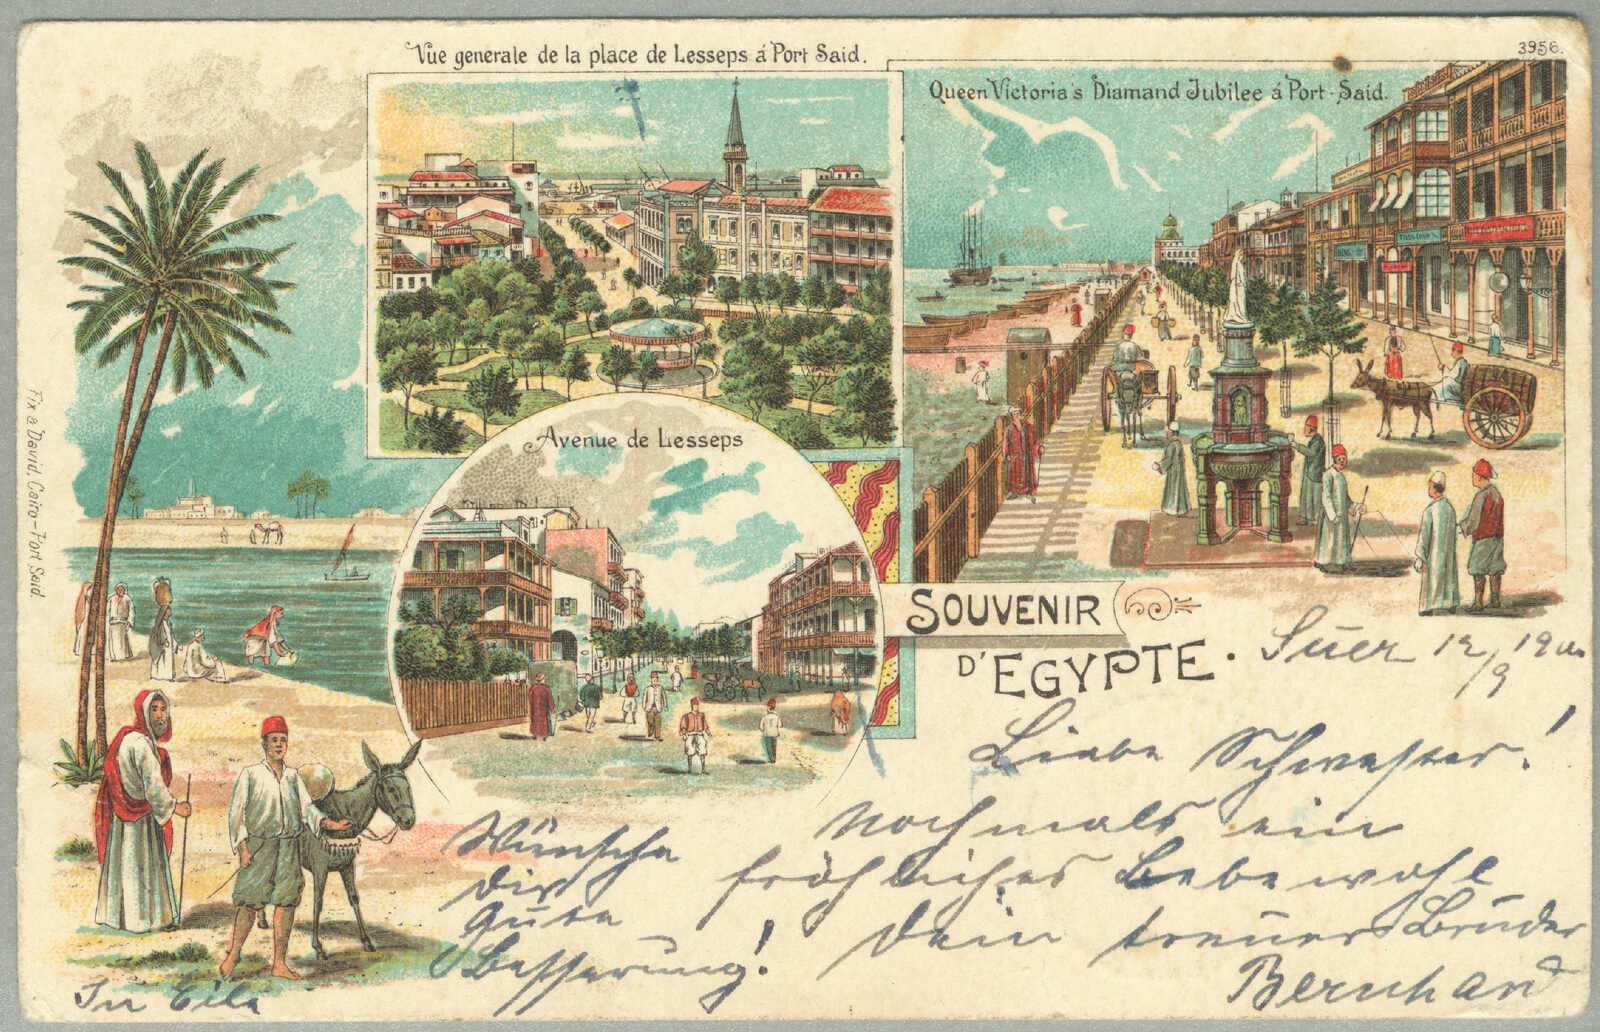 Vue generale de la place de Lesseps á Port Said.
3956.
Queen Victoria's Diamand Jubilee á Port-Said.
Avenue de Lesseps
Fix & David, Cairo-Port Said.
SOUVENIR
D'EGYPTE.
Suez 12/9 19
Liebe Schwester!
Nochmals ein
fröhliches Lebewohl
Dein treuer Bruder
Bernhard
Wünsche
Dir
Gute
Besserung!
In Eile